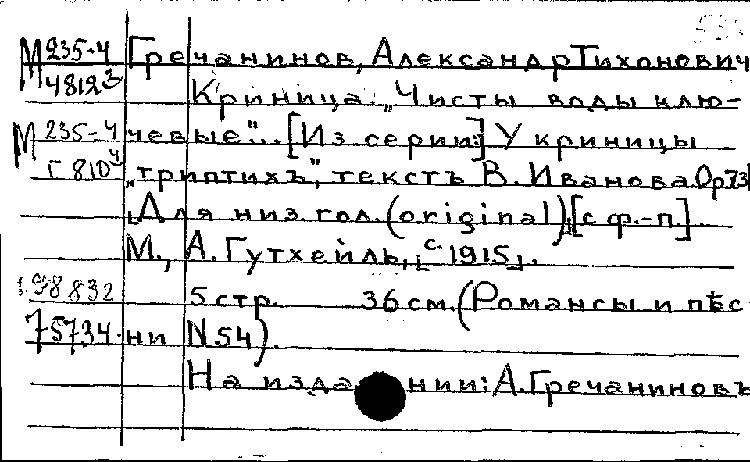 М 235-4 Гречанинов, Александр Тихонович
48123 Криница: „Чисты воды клю-
М 235-4 чевые"... [Из серии:] У криницы
Г 810 „триптихъ", текстъ В. Иванова. Ор 73
Для низ. гол. (original), [с ф.-п.]
М., А. Гутхейль, [с 1915].
98832 5 стр. 36 см. (Романсы и пѣс-
75734 ни N 54).
На издании: А. Гречаниновъ